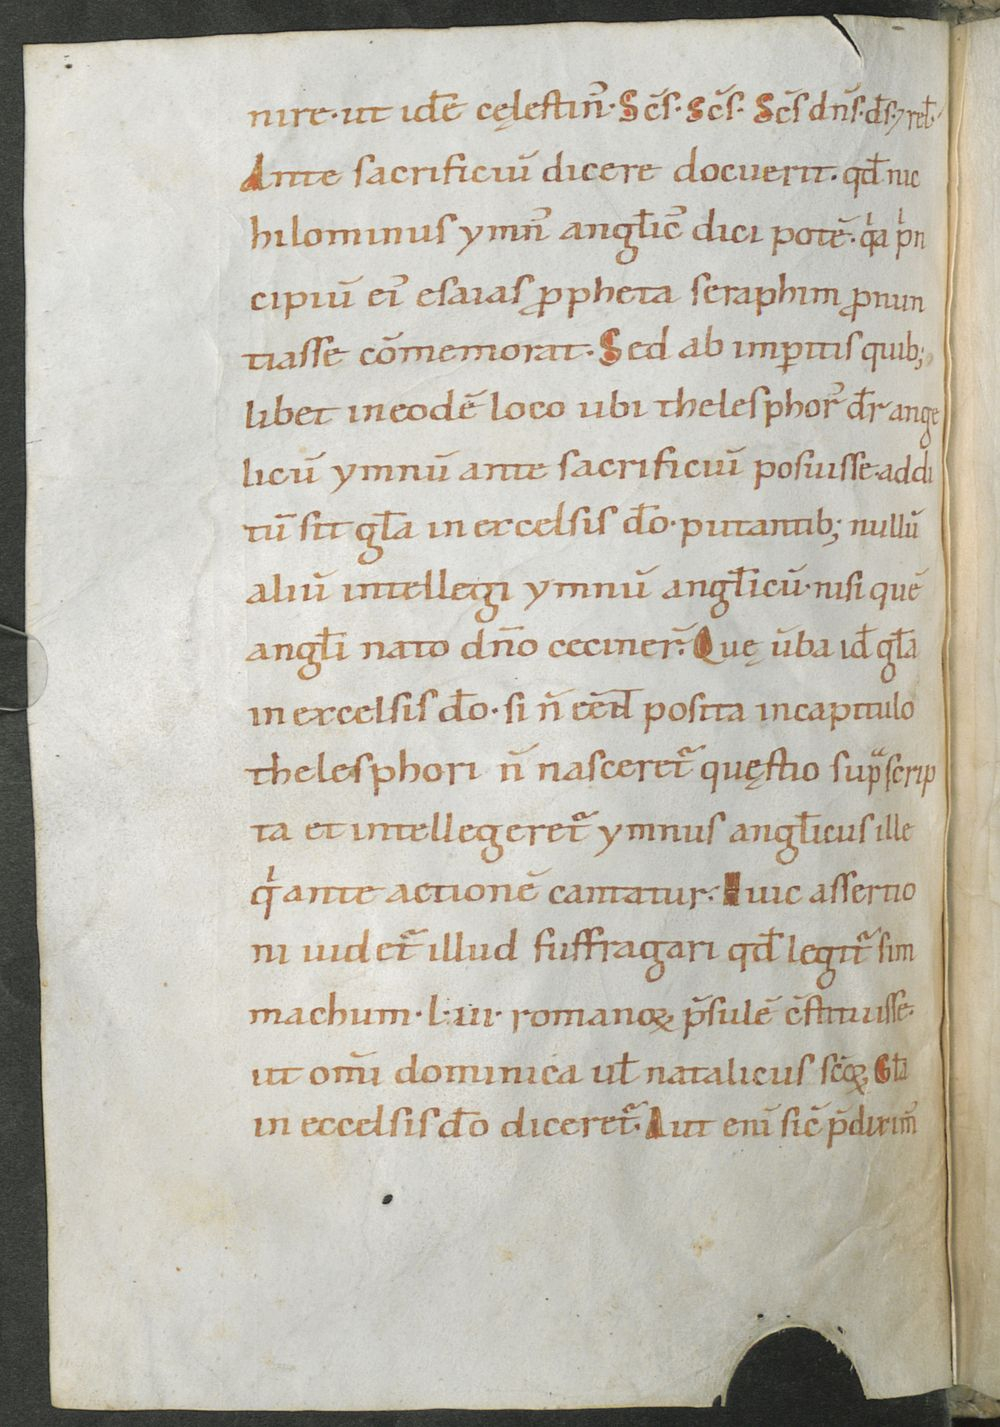 nire· ut idē cęlestin᷒· Sc̄s· Sc̄s· Sc̄s dn̄s· ds̄· ⁊ rel̄·
Ante sacrificiū dicere docuerit· qd̄ nic
hilominus ymn᷒ angl̄ic᷒ dici potē· qͥa pͥn
cipiū ei᷒ esaias ꝓpheta seraphim ꝓnun
tiasse cōmemorat· Sed ab imꝑitis quib;
libet in eodē loco ubi thelesphor᷒ dr̄ ange
licū ymnū ante sacrificiū posuisse· addi
tū sit gl̄a in excelsis dō· putantib; nullū
aliū intellegi ymnū angl̄icū· nisi quē
angl̄i nato dn̄o ceciner̄· Quę ūba id̄ gl̄a
in excelsis dō· si n̄ eēn̄t posita in capitulo
thelesphori n̄ nasceret᷑ quęstio supᷓscrip
ta et intellegeret᷑ ymnus angl̄icus ille
qͥ ante actionē cantatur· Huic assertio
ni uidet᷑ illud suffragari qd̄ legit᷑ sim
machum· l·iii· romanoꝝ p̄sulē c̄stituisse·
ut om̄i dominica ul̄ natalicus sc̄oꝝ Gl̄a
in eccelsis dō diceret᷑· Aut eni᷒ sic̄ p̄dixim᷒